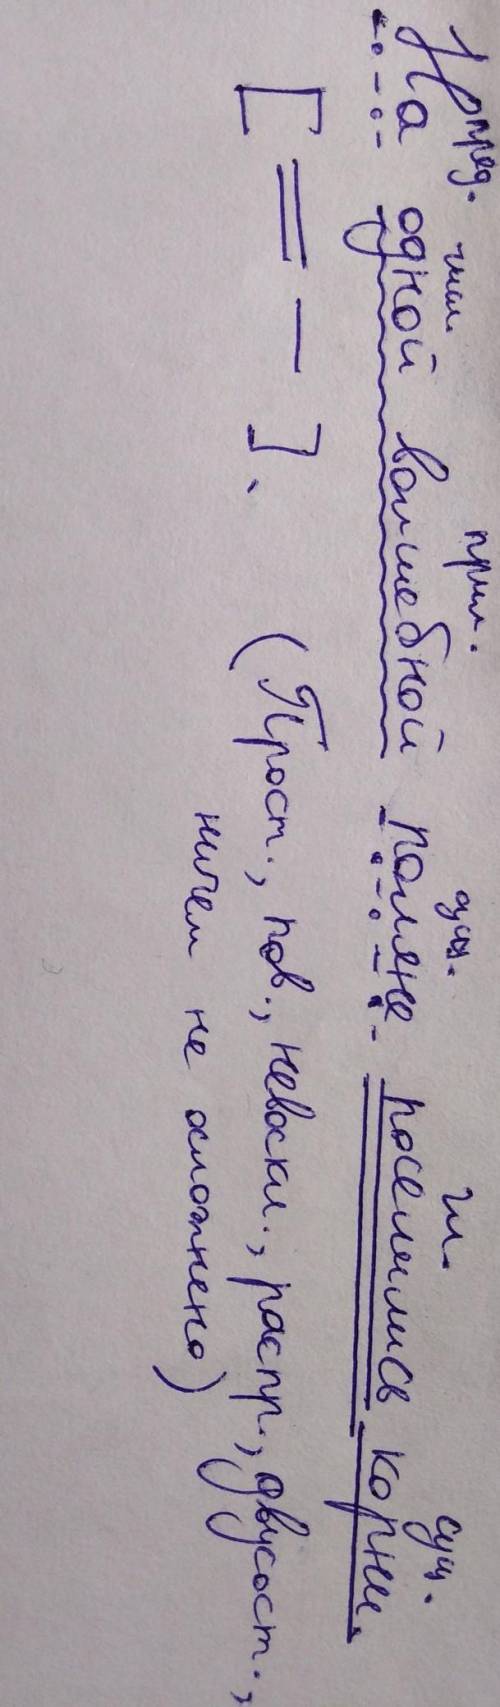 пред. числ. прил. сущ. гл. сущ.
На одной волшебной поляне поселились корни.
[ = – ]. (Прост., пов., невоскл., распр., двусост.,
ничем не осложнено)